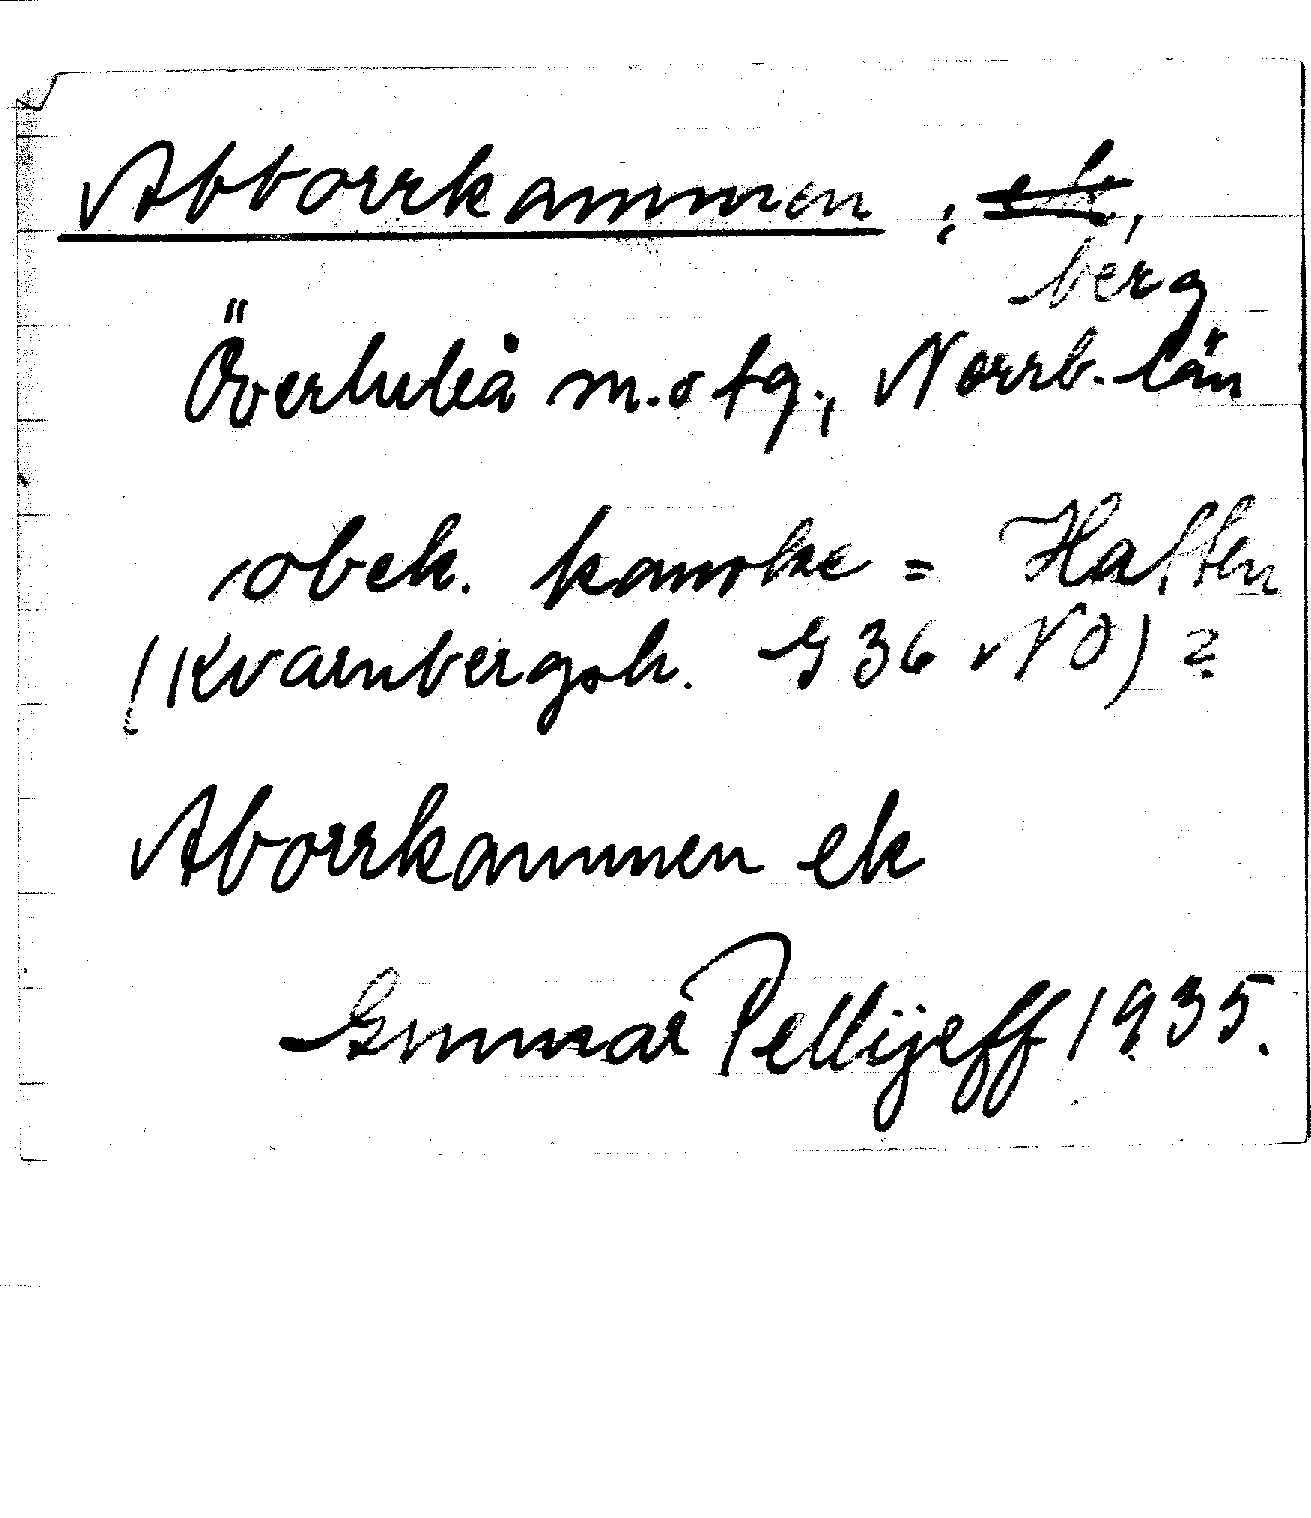 Abborrkammen ; ek,
berg
Överluleå m. o tg., Norrb. län
obek. kanske = Haften
(Kvarnbergsh. G 36 NO) ?
Aborrkammen ek
Gunnar Pellijeff 1935.